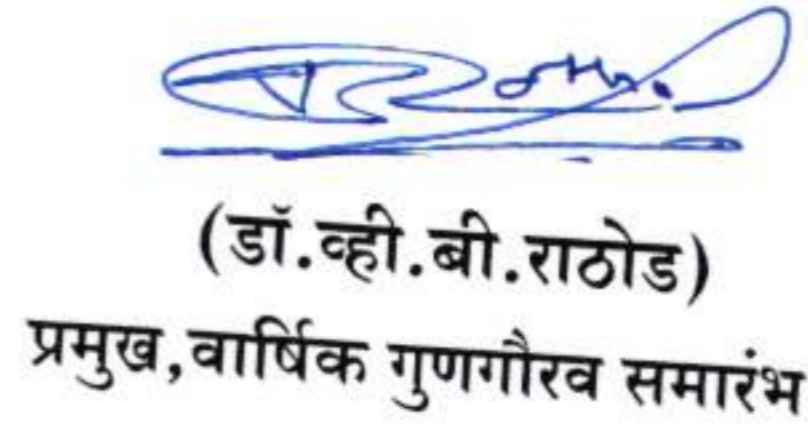 (डॉ.व्ही.बी.राठोड)
प्रमुख,वार्षिक गुणगौरव समारंभ